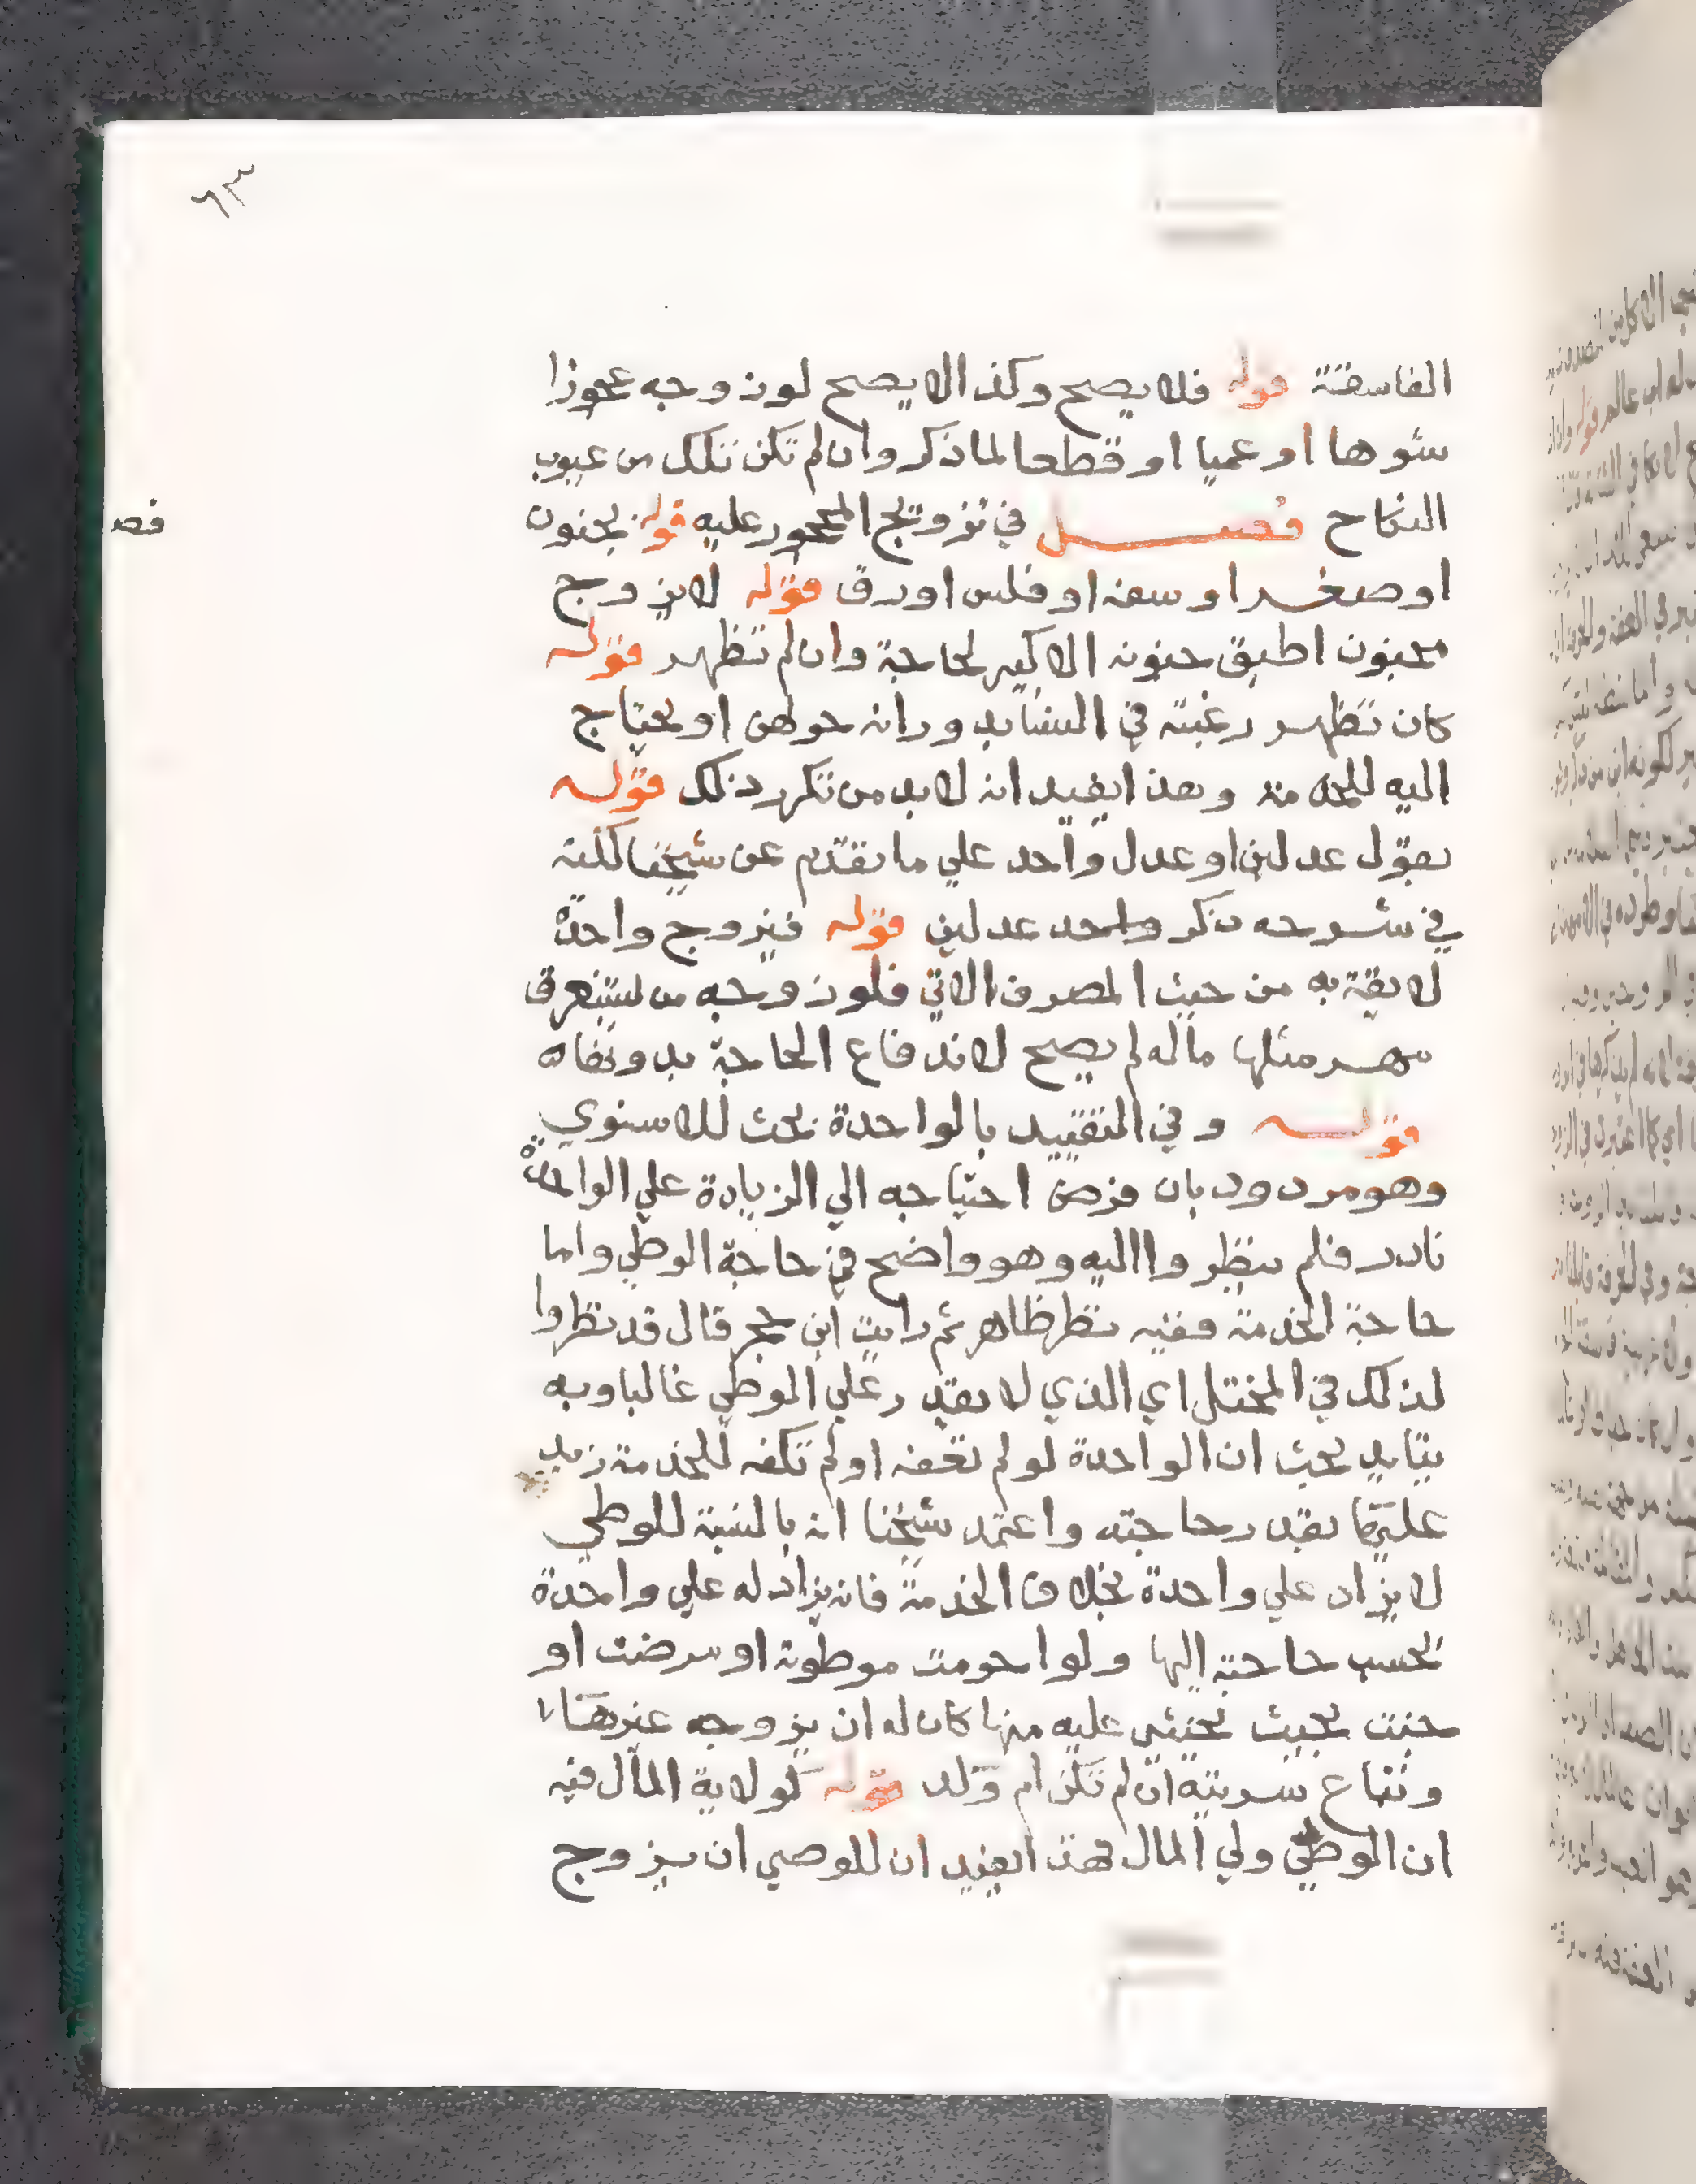 ٦٣
الفاسقة قوله فلا يصح وكذا لا يصح لو زوجه عجوزا
شوها او عميا او قطعا لما ذكر وان لم تكن تلك من عيوب
النكاح فصل في تزويج المحجور عليه قوله بجنون
فصد
او صغر او سفه او فلس او رق قوله لا يزوج
مجنون اطبق جنونه الا كبير لحاجة وان لم تظهر قوله
كان تظهر رغبته في النسا بدورانه حولهن او يحتاج
اليه للخدمة وهذا يفيد انه لا بد من تكرر ذلك قوله
بقول عدلين او عدل واحد علي ما تقدم عن شيخنا لكنه
في شرحه ذكر واحد عدلين قوله فيزوج واحدة
لايقة به من حيث المصرف الاتي فلو زوجه من يستغرق
مهر مثلها ماله لم يصح لاندفاع الحاجة بدونها ه
قوله وفي التقييد بالواحدة بحث للاسنوي
وهو مردود بان فرض احتياجه الي الزيادة علي الواحدة
نادر فلم ينظروا اليه وهو واضح في حاجة الوطي واما
حاجة الخدمة ففيه نظر ظاهر ثم رايت ابن حجر قال قد نظروا
لذلك في المختل اي الذي لا يقدر علي الوطي غالبا وبه
يتايد بحث ان الواحدة لو لم تعفه او لم تكفه للخدمة زيد
عليها بقدر حاجته واعتمد شيخنا انه بالنسبة للوطي
لا يزاد علي واحدة بخلاف الخدمة فانه يزاد له علي واحدة
بحسب حاجته اليها ولو احرمت موطوته او مرضت او
جنت بحيث يخشي عليه منها كان له ان يزوجه غيرها
وتباع سريته ان لم تكن ام ولد قوله كولاية المال فيه
ان الوصي ولي المال فهذا يفيد ان للوصي ان يزوج